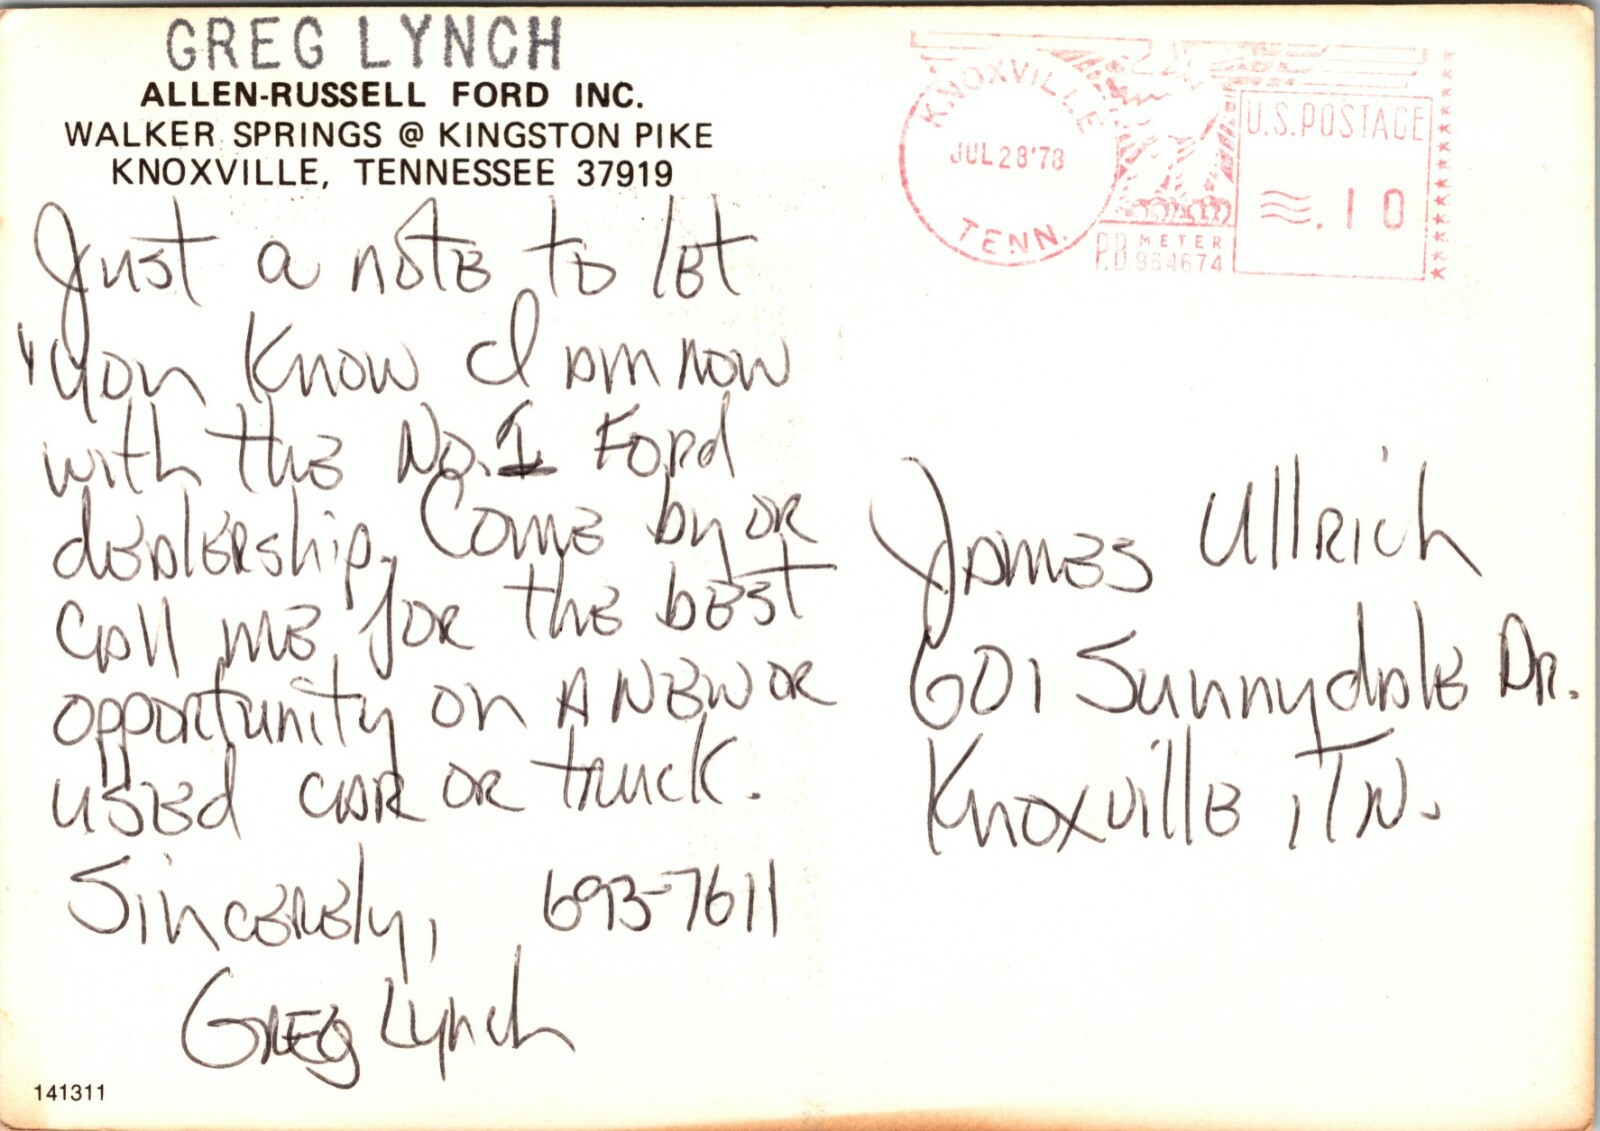 GREG LYNCH
ALLEN-RUSSELL FORD INC.
WALKER SPRINGS @ KINGSTON PIKE
KNOXVILLE, TENNESSEE 37919
Just a note to let
you know I am now
with the No. 1 Ford
dealership. Come by or
call me for the best
opportunity on A New or
used car or truck.
Sincerely, 693-7611
Greg Lynch
141311
KNOXVILLE
JUL 28'78
TENN.
P.B. METER
964674
U.S. POSTAGE
.10
James Ullrich
601 Sunnydale Dr.
Knoxville, TN.